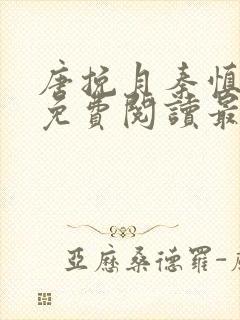 唐挽月秦慎
免費閱讀最
亞歷桑德羅-唐